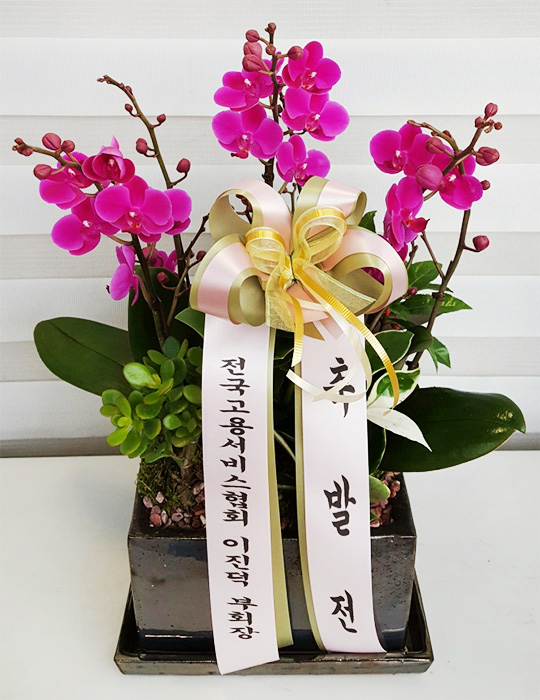 전국고용서비스협회 이진덕 부회장
축 발 전